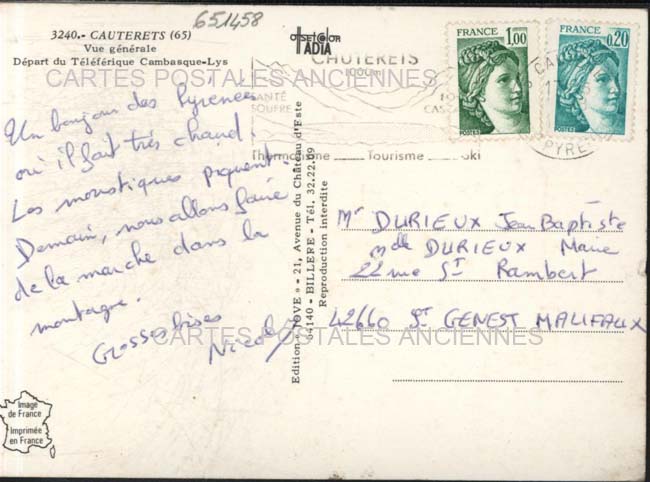 651458
3240.- CAUTERETS (65)
Vue générale
Départ du Téléférique Cambasque-Lys
offset color
IADIA
CAUTERETS
1000m
SANTÉ
SOUFRE
Thermalisme Tourisme Ski
FRANCE
1,00
POSTES
FRANCE
0,20
POSTES
PYRE
CARTES POSTALES ANCIENNES
Un bonjour des Pyrénées
où il fait très chaud.
Les moustiques piquent.
Demain, nous allons faire
de la marche dans la
montagne.
Grosses bises
Edition " JOVE " - 21, Avenue du Château d'Este
64140 - BILLERE - Tél. 32.22.09
Reproduction interdite
Mr DURIEUX Jean Baptiste
Mdle DURIEUX Marie
22 rue St Rambert
42660 St GENEST MALIFAUX
CARTES POSTALES ANCIENNES
Image
de France
Imprimée
en France